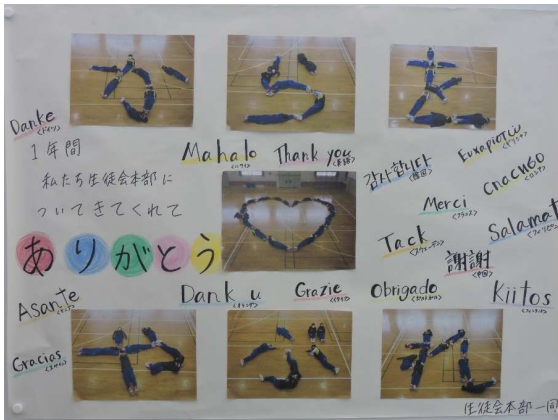 Danke
<ドイツ>
1年間
私たち生徒会本部に
ついてきてくれて
ありがとう
Mahalo
<ハワイ>
Thank you
<英語>
감사합니다
<韓国>
Ευχαριστώ
<ギリシャ>
Merci
<フランス>
Спасибо
<ロシア>
Tack
<スウェーデン>
謝謝
<中国>
Salamat
<フィリピン>
Asante
Dank u
<オランダ>
Grazie
<イタリア>
Obrigado
<ポルトガル>
Kiitos
<フィンランド>
Gracias
<スペイン>
生徒会本部一同